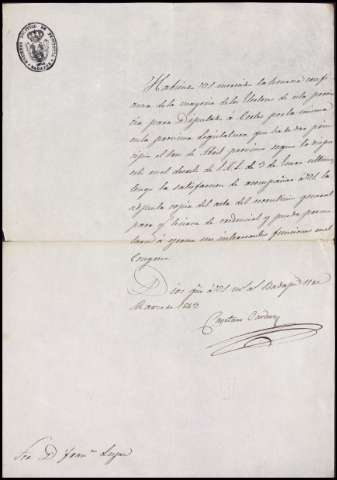 Habiendo VS. merecido la honrosa confianza
de la mayoria de los Electores de esta provincia
para Diputado à Cortes por la misma
en la proxima legislatura que ha de dar principio
el tres de Abril proximo segun lo dispuesto
en el decreto de S. A. de 3 de Enero ultimo
tengo la satisfaccion de acompañar à VS. la
copia del acta del escrutinio general
para que le sirva de credencial y pueda
à ejercer sus interesantes funciones en el
Congreso.
Dios gue à VS. ms. as. Badajoz 11 de
Marzo de 1843.
Cayetano Cardero
Sor. Dn. Franco. Lujan